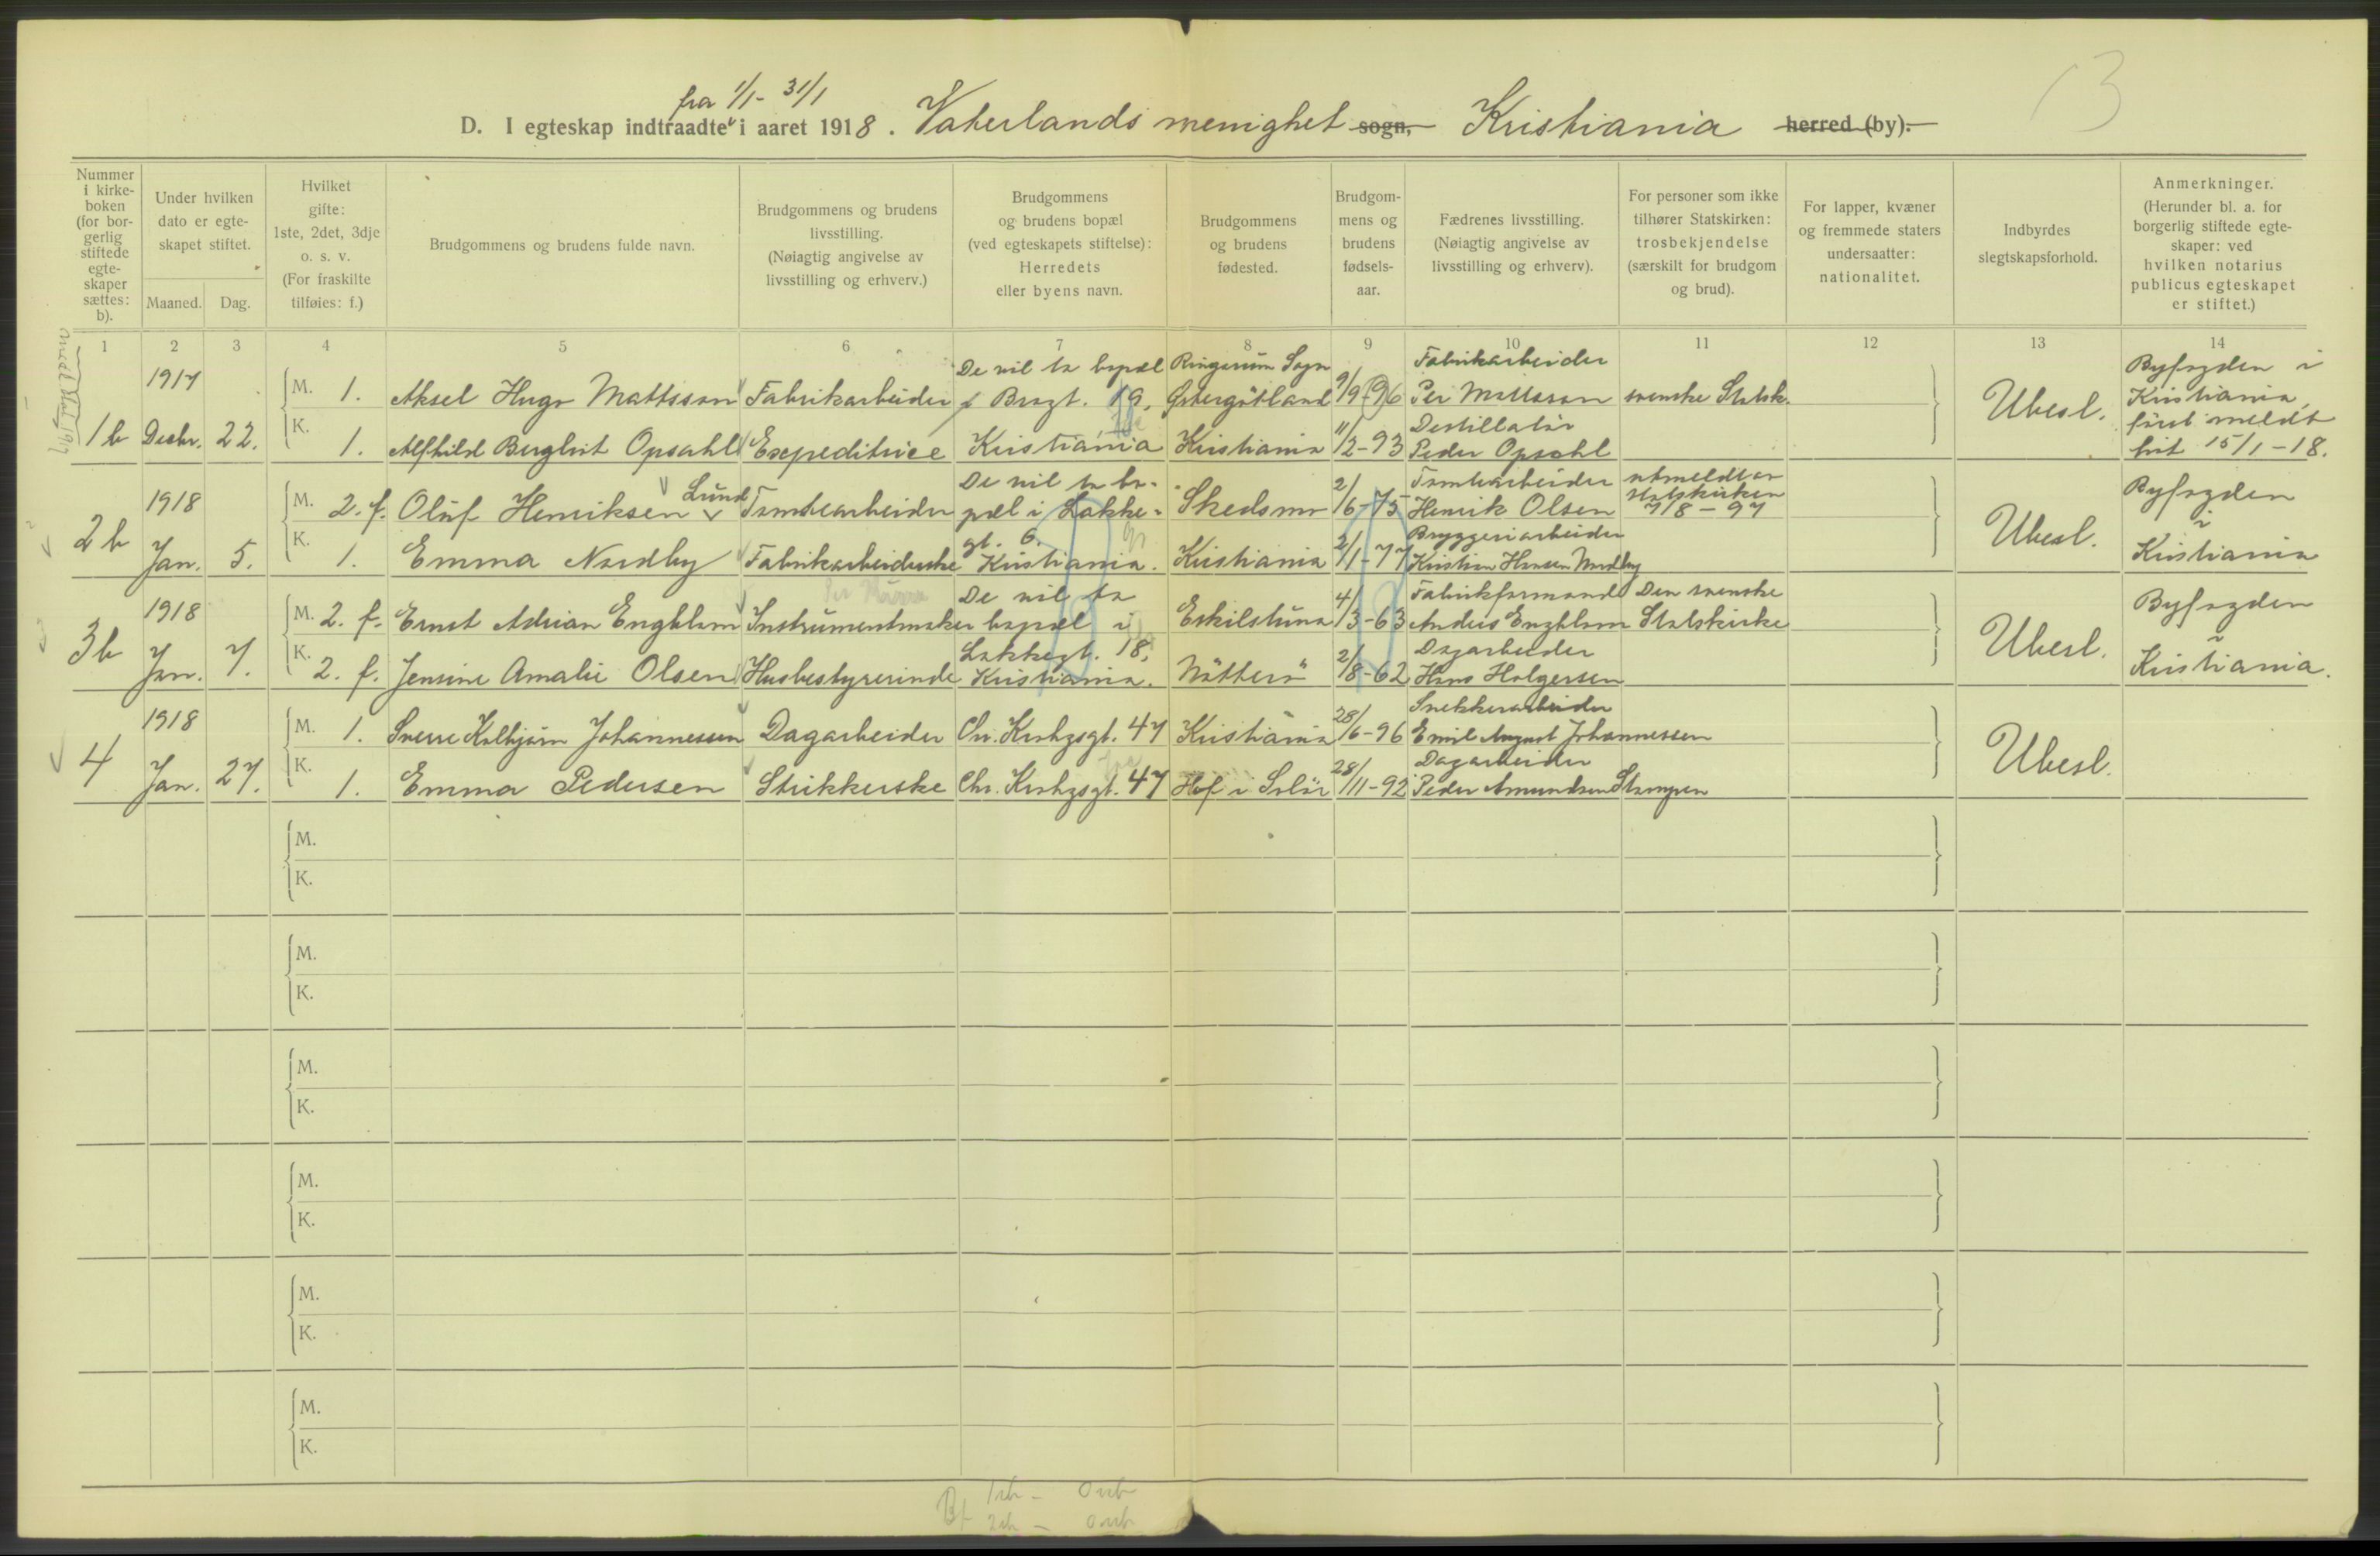 fra 1/1 - 31/1
D. I egteskap indtraadte i aaret 1918. Vaterlands menighet sogn, Kristiania herred (by).
13
Nummer i kirkeboken (for borgerlig stiftede egteskaper sættes: b).
Under hvilken dato er egteskapet stiftet.
Maaned.
Dag.
Hvilket gifte: 1ste, 2det, 3dje o. s. v. (For fraskilte tilføies: f.)
Brudgommens og brudens fulde navn.
Brudgommens og brudens livsstilling. (Nøiagtig angivelse av livsstilling og erhverv.)
Brudgommens og brudens bopæl (ved egteskapets stiftelse): Herredets eller byens navn.
Brudgommens og brudens fødested.
Brudgommens og brudens fødselsaar.
Fædrenes livsstilling. (Nøiagtig angivelse av livsstilling og erhverv).
For personer som ikke tilhører Statskirken: trosbekjendelse (særskilt for brudgom og brud).
For lapper, kvæner og fremmede staters undersaatter: nationalitet.
Indbyrdes slegtskapsforhold.
Anmerkninger. (Herunder bl. a. for borgerlig stiftede egteskaper: ved hvilken notarius publicus egteskapet er stiftet.)
1 2 3 4 5 6 7 8 9 10 11 12 13 14
1b 1917 Decbr. 22.
M. 1. Aksel Hugo Mattsson Fabrikarbeider De vil ta bopæl i Brogt. 19, Ringarum Sogn Østergötland 9/9-96 Fabrikarbeider Per Mattsson svenske Statsk.
K. 1. Alfhild Berglist Opsahl Expeditrice Kristiania Kristiania 11/2-93 Destillatør Peder Opsahl
Ubesl.
Byfogden i Kristiania, først meldt hit 15/1-18.
2b 1918 Jan. 5.
M. 2. f. Oluf Henriksen Lund Tomtearbeider De vil ta bopæl i Lakkegt. 6. Skedsmo 2/6-75 Tomtearbeider Henrik Olsen utmeldt av statskirken 7/8-97
K. 1. Emma Nordby Fabrikarbeiderske Kristiania. Kristiania 2/1-77 Bryggeriarbeider Kristian Hansen Nordby
Ubesl.
Byfogden i Kristiania
3b 1918 Jan. 7.
M. 2. f. Ernst Adrian Engblom Instrumentmaker De vil ta bopæl i Lakkegt. 18, Eskilstuna 4/3-63 Fabrikformand Anders Engblom Den svenske Statskirke
K. 2. f. Jensine Amalie Olsen Husbestyrerinde Kristiania. Nøtterø 2/8-62 Dagarbeider Hans Holgersen
Ubesl.
Byfogden i Kristiania.
4 1918 Jan. 27.
M. 1. Sverre Kolbjørn Johannessen Dagarbeider Chr. Krohgsgt. 47 Kristiania 28/6-96 Snekkerarbeider Emil August Johannessen
K. 1. Emma Pedersen Strikkerske Chr. Krohgsgt. 47 Hof i Solør 28/11-92 Dagarbeider Peder Amundsen Stampen
Ubesl.
M.
K.
M.
K.
M.
K.
M.
K.
M.
K.
M.
K.